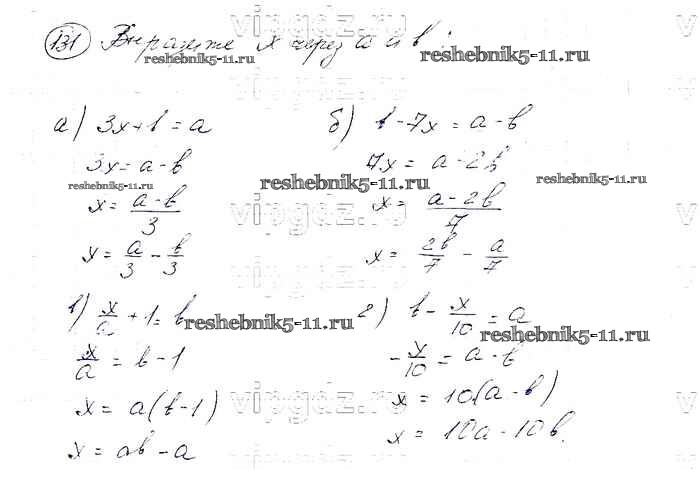 131 Выразите x через a и b:
а) 3x+b=a
3x=a-b
x=\frac{a-b}{3}
x=\frac{a}{3}-\frac{b}{3}
б) b-7x=a-b
7x=a-2b
x=\frac{a-2b}{7}
x=\frac{2b}{7}-\frac{a}{7}
в) \frac{x}{a}+1=b
\frac{x}{a}=b-1
x=a(b-1)
x=ab-a
г) b-\frac{x}{10}=a
-\frac{x}{10}=a-b
x=10(a-b)
x=10a-10b.
vipgdz.ru
reshebnik5-11.ru
reshebnik5-11.ru
reshebnik5-11.ru
vipgdz.ru
reshebnik5-11.ru
reshebnik5-11.ru
vipgdz.ru
reshebnik5-11.ru
reshebnik5-11.ru
vipgdz.ru